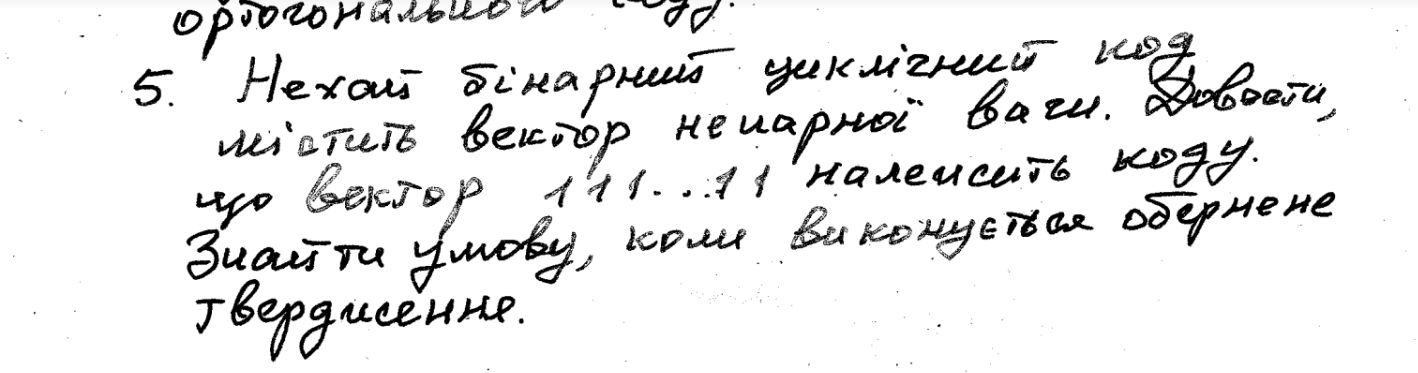 ортогонального коду.
5. Нехай бінарний циклічний код
містить вектор непарної ваги. Довести,
що вектор 111...11 належить коду.
Знайти умову, коли виконується обернене
твердження.